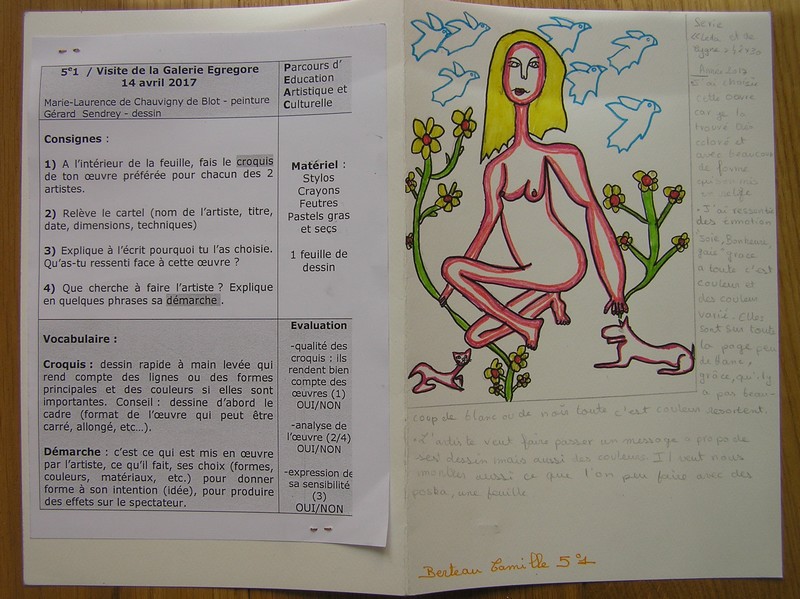 5e1 / Visite de la Galerie Egregore
14 avril 2017
Marie-Laurence de Chauvigny de Blot - peinture
Gérard Sendrey - dessin
Parcours d'
Education
Artistique et
Culturelle
Consignes :
1) A l'intérieur de la feuille, fais le croquis
de ton œuvre préférée pour chacun des 2
artistes.
2) Relève le cartel (nom de l'artiste, titre,
date, dimensions, techniques)
3) Explique à l'écrit pourquoi tu l'as choisie.
Qu'as-tu ressenti face à cette œuvre ?
4) Que cherche à faire l'artiste ? Explique
en quelques phrases sa démarche .
Matériel :
Stylos
Crayons
Feutres
Pastels gras
et secs
1 feuille de
dessin
Vocabulaire :
Croquis : dessin rapide à main levée qui
rend compte des lignes ou des formes
principales et des couleurs si elles sont
importantes. Conseil : dessine d'abord le
cadre (format de l'œuvre qui peut être
carré, allongé, etc...).
Démarche : c'est ce qui est mis en œuvre
par l'artiste, ce qu'il fait, ses choix (formes,
couleurs, matériaux, etc.) pour donner
forme à son intention (idée), pour produire
des effets sur le spectateur.
Evaluation
-qualité des
croquis : ils
rendent bien
compte des
œuvres (1)
OUI/NON
-analyse de
l'œuvre (2/4)
OUI/NON
-expression de
sa sensibilité
(3)
OUI/NON
Serie
et de
Année 2017
J'ai choisie
cette œuvre
car je la
trouve très
coloré et
avec beaucoup
de forme
• J'ai ressentie
des émotion
"joie, Bonheur,
gaie" grace
a toute c'est
couleur et
des couleur
varié. Elles
sont sur toute
la page peu
de blanc,
grâce, qu'il y
a pas beau-
coup de blanc ou de noir toute c'est couleur ressortent.
veut faire passer un message a propo de
ses dessin mais aussi des couleurs Il veut nous
montrer aussi ce que l'on peu faire avec des
posca, une feuille
Berteau Camille 5°1